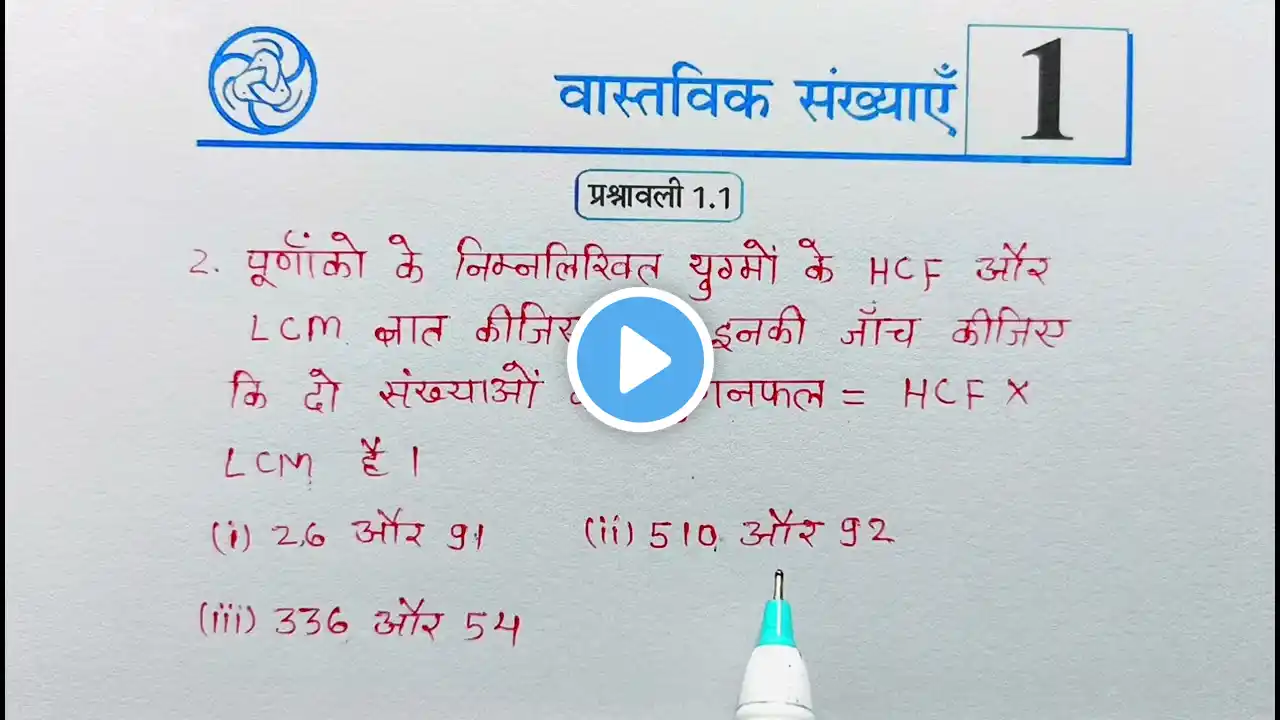 वास्तविक संख्याएँ
1
प्रश्नावली 1.1
2. पूर्णांको के निम्नलिखित युग्मों के HCF और
LCM ज्ञात इनकी जाँच कीजिए
कि दो संख्याओं = HCF ×
LCM है।
(i) 26 और 91 (ii) 510 और 92
(iii) 336 और 54